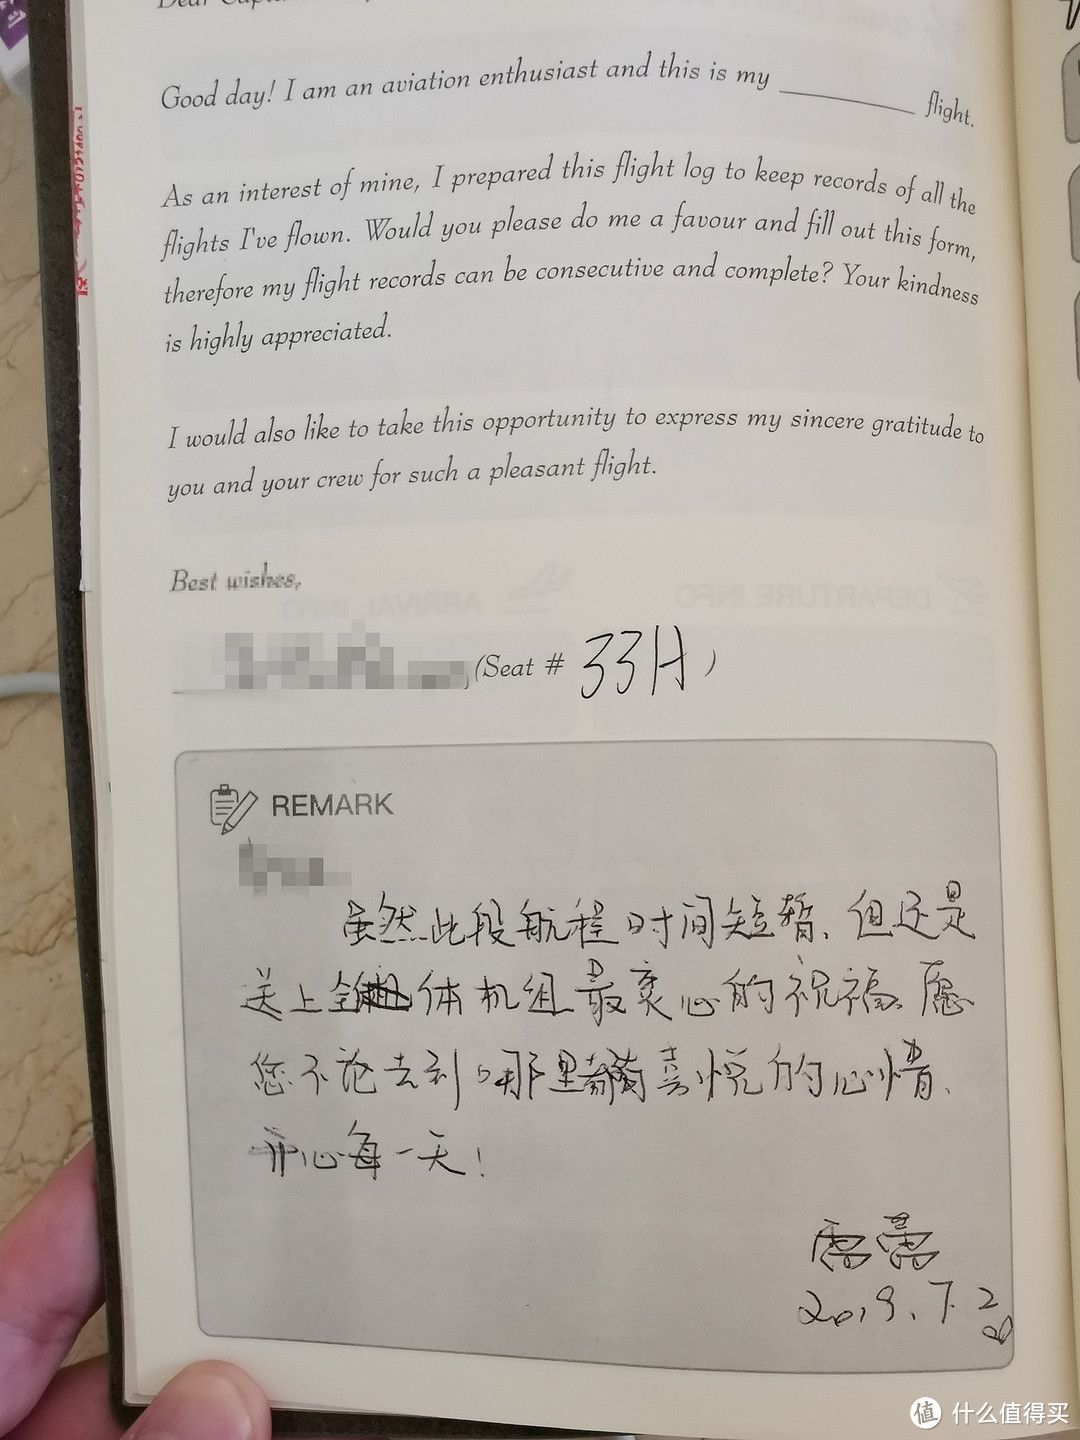 Good day! I am an aviation enthusiast and this is my ________ flight.
As an interest of mine, I prepared this flight log to keep records of all the
flights I've flown. Would you please do me a favour and fill out this form,
therefore my flight records can be consecutive and complete? Your kindness
is highly appreciated.
I would also like to take this opportunity to express my sincere gratitude to
you and your crew for such a pleasant flight.
Best wishes,
(Seat # 33H)
REMARK
虽然此段航程时间短暂、但还是
送上全体机组最衷心的祝福、愿
您不论去到哪里都有喜悦的心情、
开心每一天!
雷蕾
2019.7.2
值 什么值得买